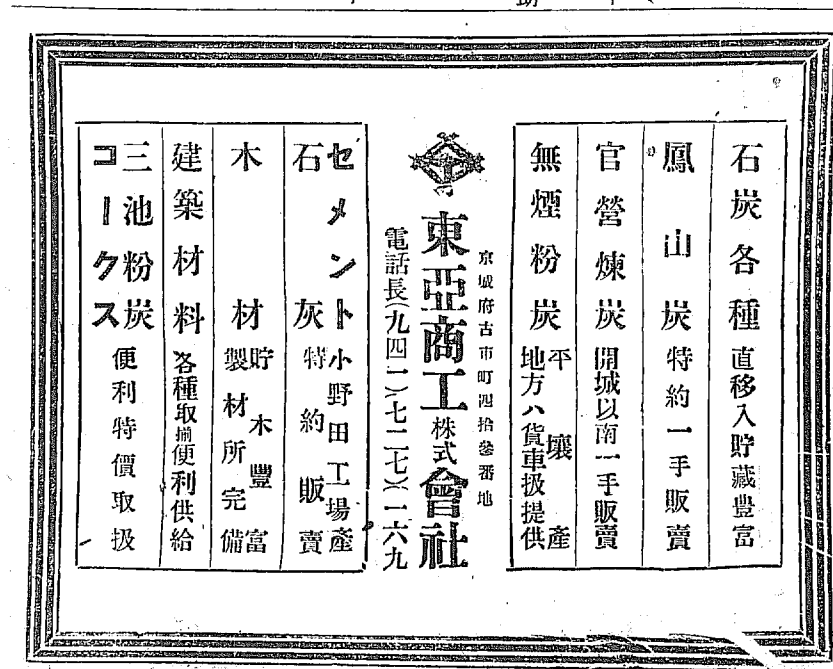 石炭各種 直移入貯藏豊富
鳳山炭 特約一手販賣
官營煉炭 開城以南一手販賣
無煙粉炭 平壤產
地方ハ貨車扱提供
京城府古市町四拾參番地
東亞商工株式會社
電話長(九四一)(七二七)(一六九
セメント 小野田工場產
石灰 特約販賣
木材 貯木豐富
製材所完備
建築材料 各種取揃便利供給
三池粉炭
コークス 便利特價取扱